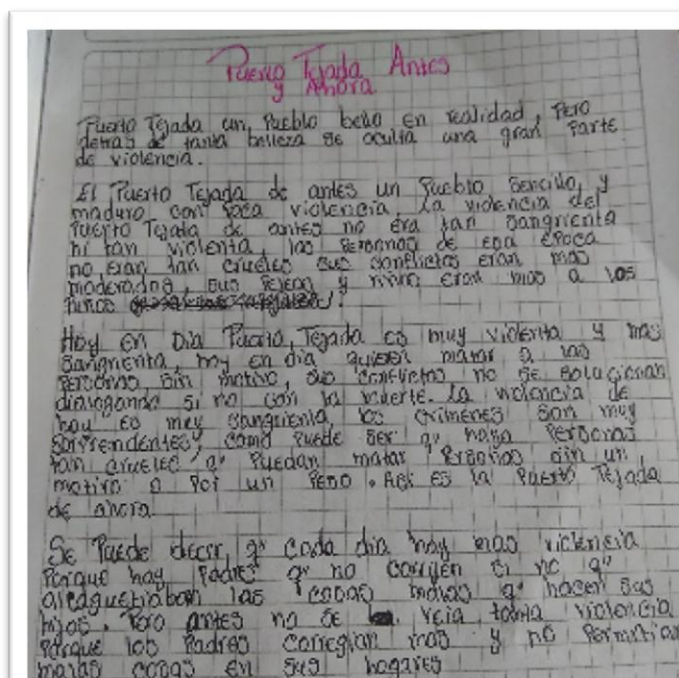 Puerto Tejada Antes
y Ahora
Puerto Tejada un Pueblo bello en realidad, Pero
detras de tanta belleza se oculta una gran Parte
de violencia.
El Puerto Tejada de antes un Pueblo Sencillo y
maduro con Poca violencia la violencia del
Puerto Tejada de antes no era tan sangrienta
ni tan violenta, las Personas de esa época
no eran tan crueles sus conflictos eran mas
moderados, sus Peleas y riñas eran mas a los
Puños
Hoy en Dia Puerto Tejada es muy violenta y mas
Sangrienta, hoy en dia quieren matar a las
Personas sin motivo, sus conflictos no se solucionan
dialogando si no con la muerte. la violencia de
hoy es muy sangrienta, los crimenes son muy
Sorprendentes, como Puede ser q' haya Personas
tan crueles q' Puedan matar sin un
motivo o Por un Peso. Asi es la Puerto Tejada
de ahora.
Se Puede decir q' cada dia hay mas violencia
Porque hay Padres q' no corrigen si no q'
alcaguetiaban las cosas malas q' hacen sus
hijos. Pero antes no se veia tanta violencia
Porque los Padres corregian mas y no Permitian
malas cosas en sus hogares